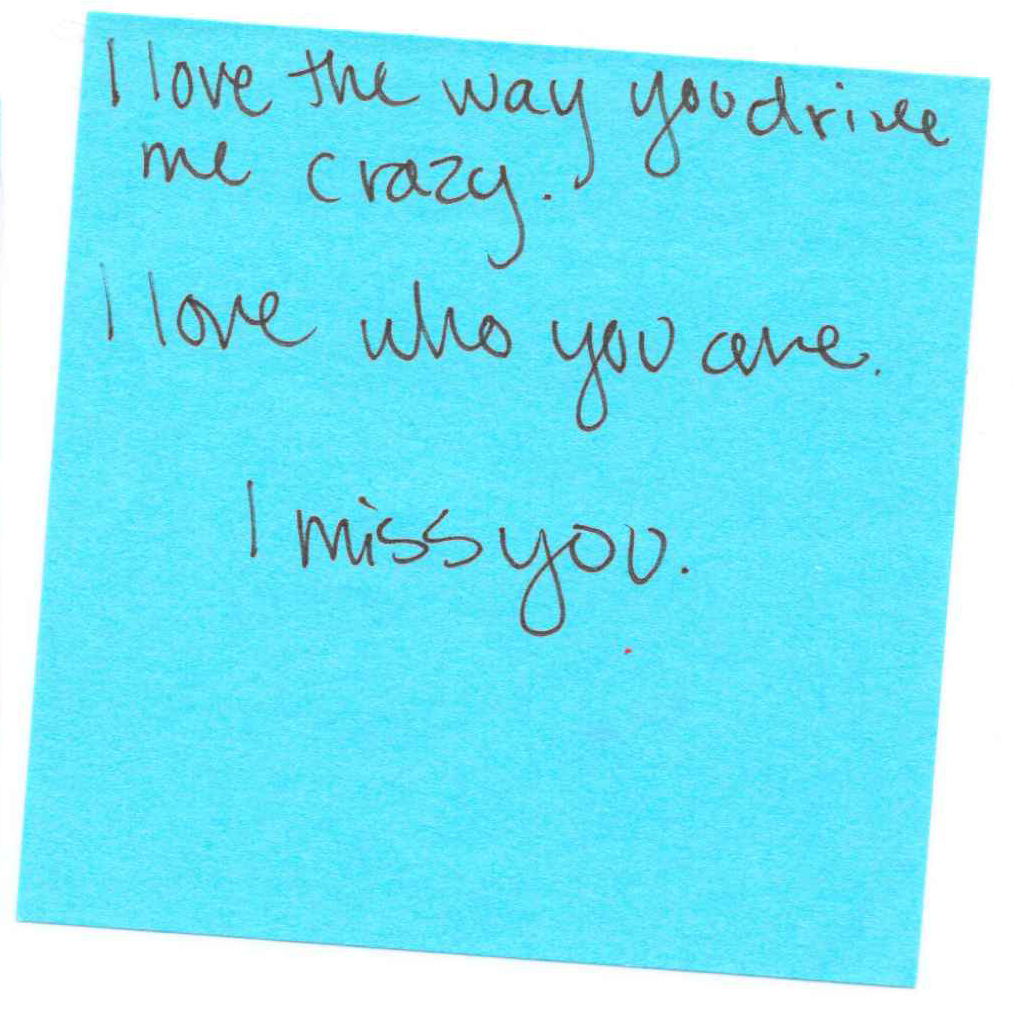 I love the way you drive
me crazy.
I love who you are.
I miss you.